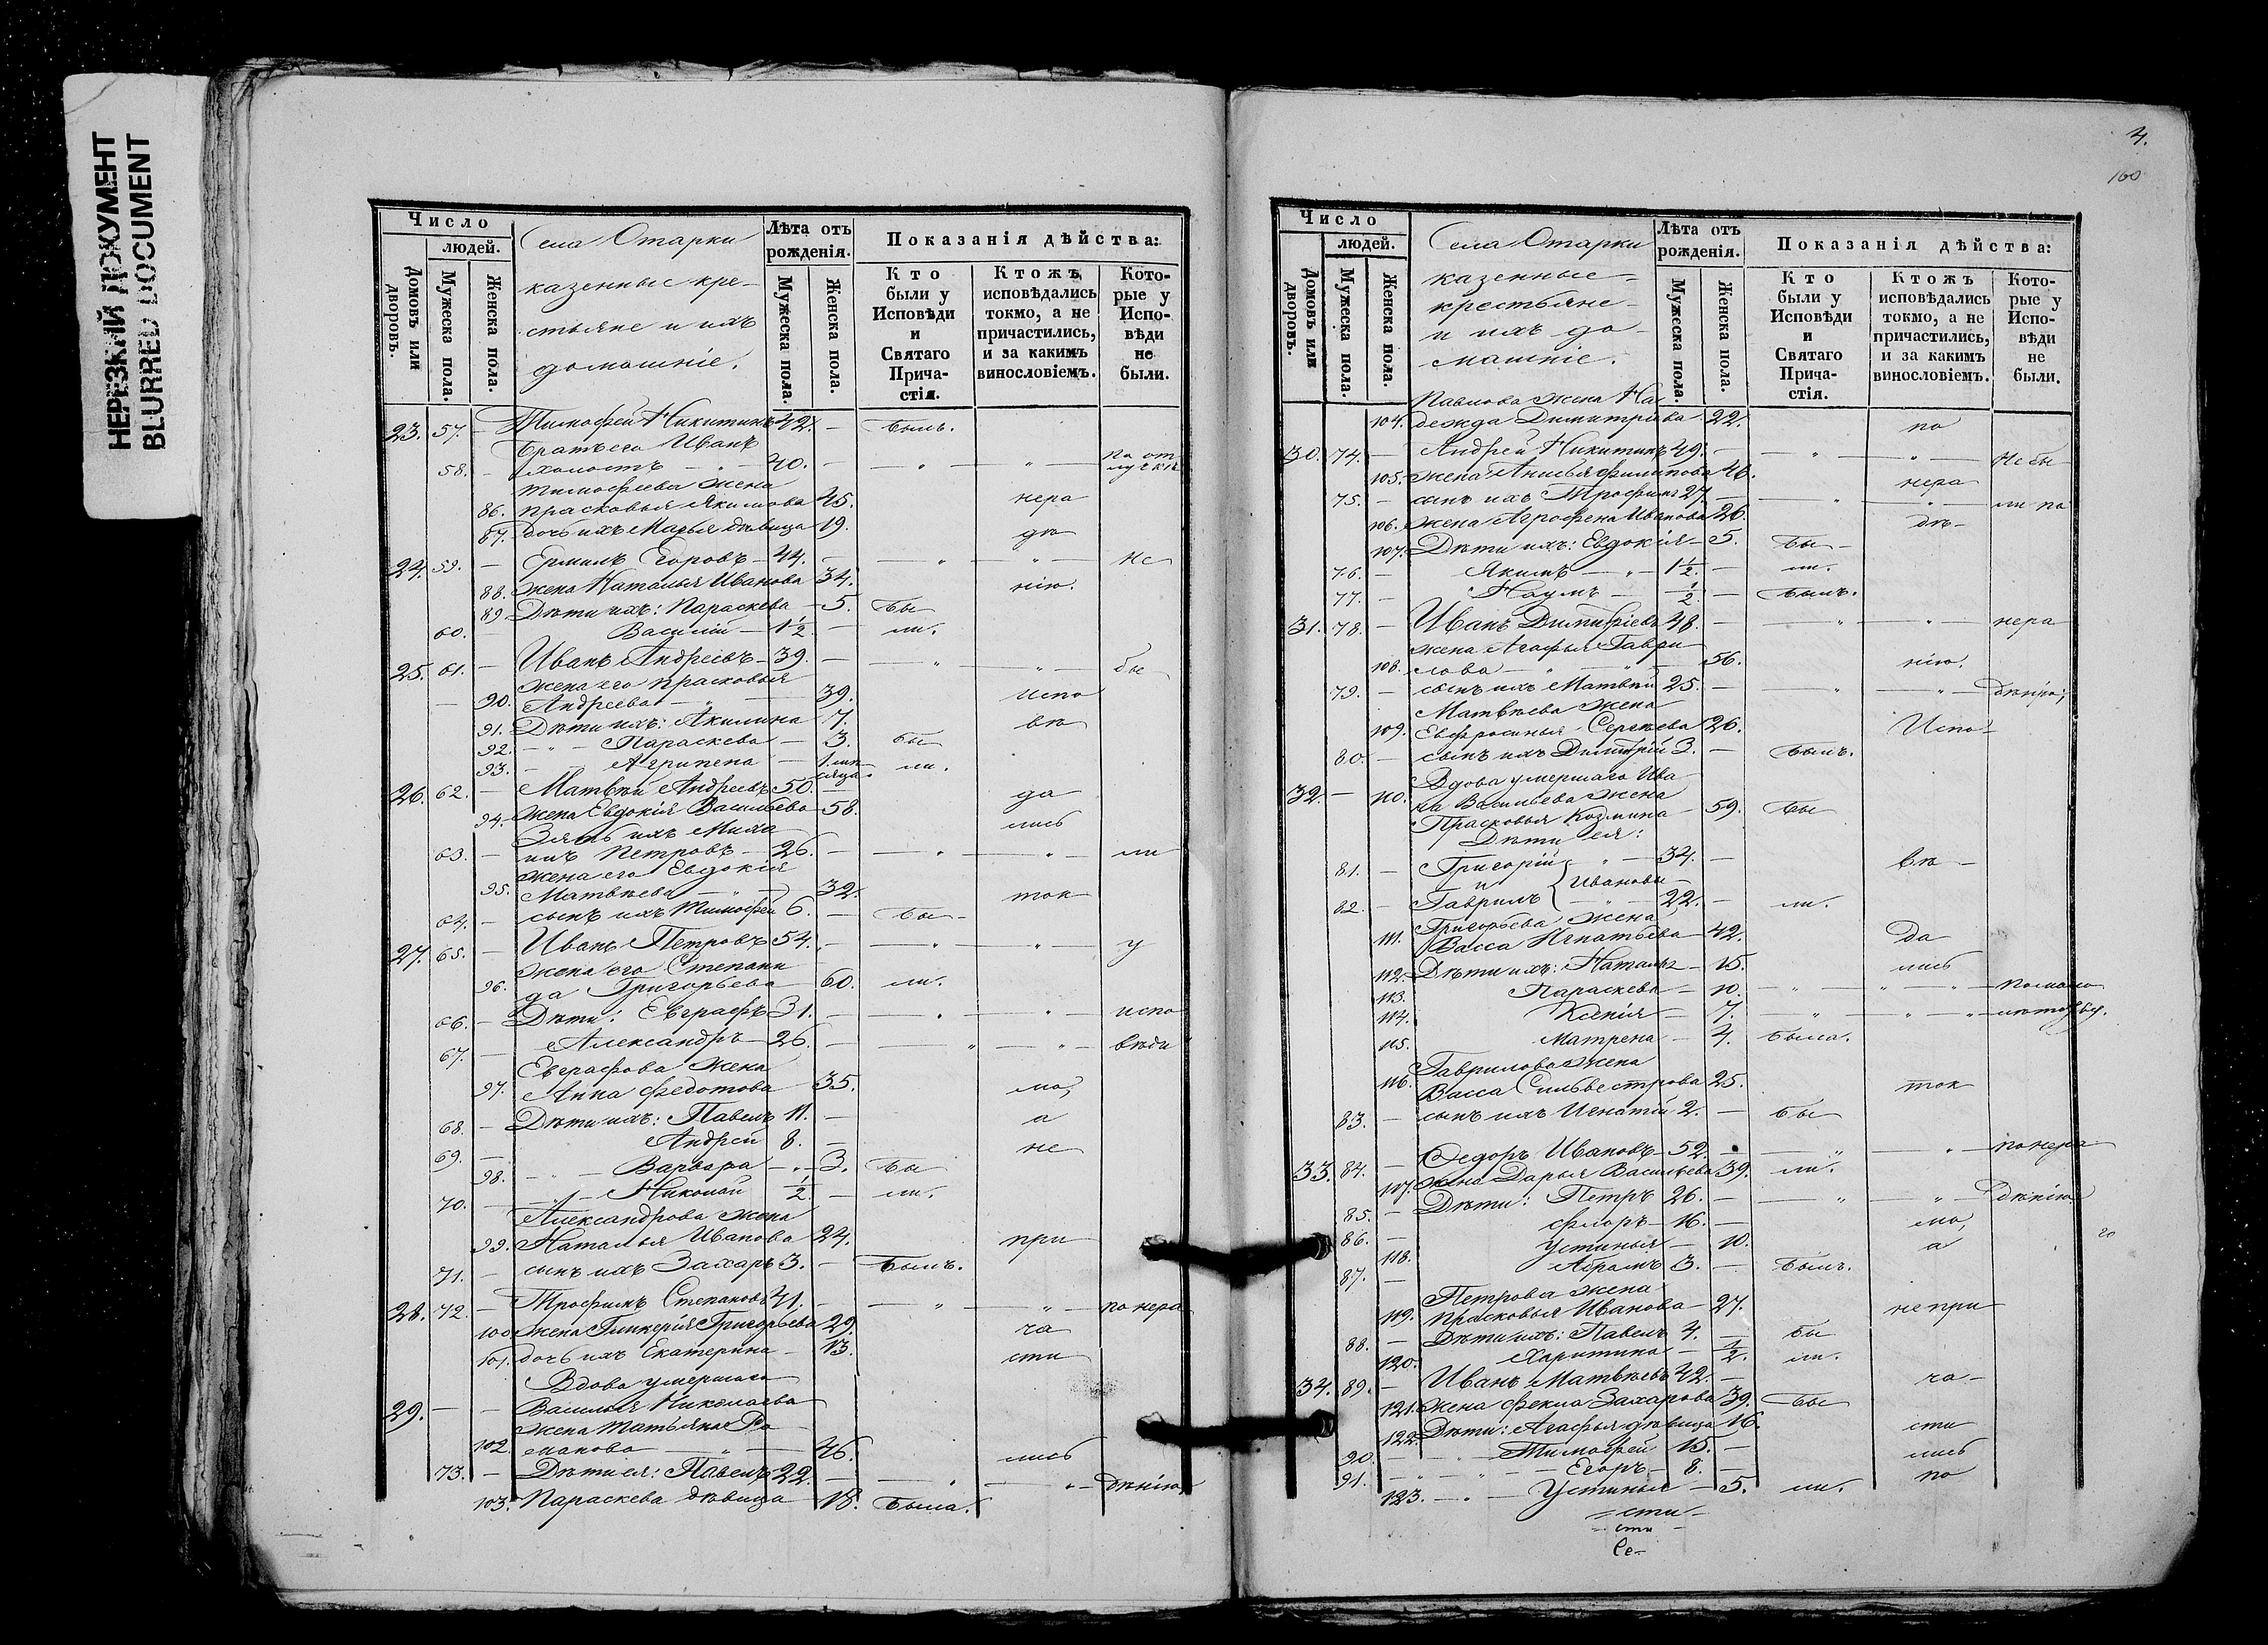 НЕРЕЗКИЙ ДОКУМЕНТ
BLURRED DOCUMENT
Число
людей.
Домовъ или дворовъ.
Мужеска пола.
Женска пола.
Села Отарки
казенные кре-
стьяне и ихъ
домашніе.
Лѣта отъ рожденія.
Мужеска пола.
Женска пола.
Показанія дѣйства:
Кто были у Исповѣди и Святаго Прича-стія.
Ктожъ исповѣдались токмо, а не причастились, и за какимъ винословіемъ.
Кото-рые у Испо-вѣди не были.
23. 57. — Тимофей Никитинъ 42. — былъ.
Братъ его Иванъ
58. — холостъ — " — 40. — — " — " — по от лучкѣ
Тимофеева жена
86. Прасковья Якимова 45. нера
87. дочь ихъ Марья дѣвица 19. дѣ
24. 59. — Ермилъ Егоровъ — 44. — — " — " — не
88. жена Наталья Иванова 34. нію.
89. Дѣти ихъ: Параскева — 5. бы
60. — Василій — 1 1/2. — ли.
25. 61. — Иванъ Андреевъ — 39. — — " — " — бы
жена его Прасковья
— 90. Андреева — " — 39. испо
91. Дѣти ихъ: Акилина 7. вѣ
92. — " — Параскева — 3. бы
93. — — Агрипена — 1 мѣ сяца. ли.
26. 62. — Матвѣй Андреевъ 50. — да
94. жена Евдокія Васильева 58. лись
Зять ихъ Миха
63. — илъ Петровъ — 26. — — " — " — ли
жена его Евдокія
95. Матвѣева — " — 32. ток
64. — сынъ ихъ Тимофей 6. — бы —
27. 65. — Иванъ Петровъ 54. — — " — " — у
жена его Степани
96. да Григорьева 60. ли.
66. — Дѣти: Евграфъ 31. — — " — " — испо
67. — Александръ — 26. — — " — " — вѣди
Евграфова жена
97. Анна Федотова 35. мо,
68. — Дѣти ихъ: Павелъ 11. — а
69. — Андрей 8. — не
98. — " — Варвара — " — 3. бы
70. — " — Николай 1/2 — ли.
Александрова жена
99. Наталья Иванова 24. при
71. — сынъ ихъ Захаръ 3. — былъ.
28. 72. — Трофимъ Степановъ 41. — — " — " — по нера
100. жена Гликерія Григорьева 29. ча
101. дочь ихъ Екатерина — 13. сти
Вдова умершаго
29. — — Василья Николаева
жена Татьяна Ро
102. манова — " — 46. лись
73. — Дѣти ея: Павелъ 22. — — " — " — дѣнію
103. Параскева дѣвица 18. была.
4.
160
Число
людей.
Домовъ или дворовъ.
Мужеска пола.
Женска пола.
Села Отарки
казенные —
крестьяне —
и ихъ до —
машніе.
Лѣта отъ рожденія.
Мужеска пола.
Женска пола.
Показанія дѣйства:
Кто были у Исповѣди и Святаго Прича-стія.
Ктожъ исповѣдались токмо, а не причастились, и за какимъ винословіемъ.
Кото-рые у Испо-вѣди не были.
Павлова жена На
104. дежда Димитріева 22. по
30. 74. — Андрей Никитинъ 49. — — " — " — не бы
105. жена Анисья Филипова 46. нера
75. — сынъ ихъ Трофимъ 27. — — " — " — ли по
106. жена Агрофена Иванова 26. дѣ —
107. Дѣти ихъ: Евдокія — 5. бы —
76. — Якимъ — " — 1 1/2. — ли.
77. — Наумъ — 1/2 — былъ.
31. 78. — Иванъ Димитріевъ 48. — — " — " — нера
жена Агафья Гаври
108. лова — " — " — 56. нію.
79. — сынъ ихъ Матвѣй 25. — — " — " — дѣнію,
Матвѣева жена
109. Евфросинья Сергѣева 26. Испо —
80. — сынъ ихъ Димитрій 3. — былъ.
Вдова умершаго Ива
32. — 110. на Васильева жена
Прасковья Козмина — 59. бы
Дѣти ея:
81. — Григорій — " — 34. — вѣ —
и Ивановы —
82. — Гаврилъ — " — 22. — ли.
Григорьева жена
111. Васса Игнатьева 42. да
112. Дѣти ихъ: Наталья — 15. лись
113. Параскева — 10. — " — " — " — помало
114. Ксенія — 7. — " — " — " — лѣтству.
115. Матрена — 4. была.
Гаврилова жена
116. Васса Сильвестрова 25. ток
83. — сынъ ихъ Игнатій 2. — бы
33. 84. — Федоръ Ивановъ — 52. — — " — " — по нера
117. жена Дарья Васильева 39. ли.
85. — Дѣти: Петръ 26. — — " — " — дѣнію
86. — Флоръ — 16. — мо,
118. Устинья — 10. а
87. — Абрамъ 3. — былъ.
Петрова жена
119. Прасковья Иванова — 27. не при
88. — Дѣти ихъ: Павелъ 4. — бы
120. Харитина — 1/2. ли.
34. 89. — Иванъ Матвѣевъ 42. — ча —
121. жена Фекла Захарова 39. бы
122. Дѣти: Агафья дѣвица 16. сти
90. — — " — Тимофей 15. — лись
91. — " — " — Егоръ — 8. —
123. — " — Устинья — 5. ли. по
— сти —
сти
Се —